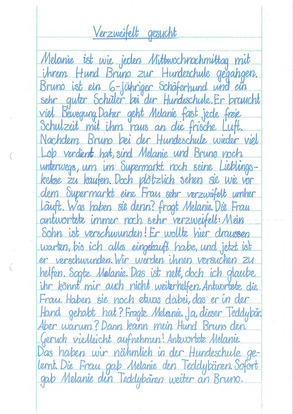 Verzweifelt gesucht
Melanie ist wie jeden Mittwochnachmittag mit
ihrem Hund Bruno zur Hundeschule gegangen.
Bruno ist ein 6-jähriger Schäferhund und ein
sehr guter Schüler bei der Hundeschule. Er braucht
viel Bewegung. Daher geht Melanie fast jede freie
Schulzeit mit ihm raus an die frische Luft.
Nachdem Bruno bei der Hundeschule wieder viel
Lob verdient hat, sind Melanie und Bruno noch
unterwegs, um im Supermarkt noch seine Lieblings-
kekse zu kaufen. Doch plötzlich sehen sie wie vor
dem Supermarkt eine Frau sehr verzweifelt umher
läuft. Was haben sie denn? fragt Melanie. Die Frau
antwortete immer noch sehr verzweifelt: Mein
Sohn ist verschwunden! Er wollte hier draussen
warten, bis ich alles eingekauft habe, und jetzt ist
er verschwunden. Wir werden ihnen versuchen zu
helfen. Sagte Melanie. Das ist nett, doch ich glaube
ihr könnt mir auch nicht weiterhelfen. Antwortete die
Frau. Haben sie noch etwas dabei, das er in der
Hand gehabt hat? Fragte Melanie. Ja, dieser Teddybär.
Aber warum? Dann kann mein Hund Bruno den
Geruch vielleicht aufnehmen! Antwortete Melanie.
Das haben wir nähmlich in der Hundeschule ge-
lernt. Die Frau gab Melanie den Teddybären. Sofort
gab Melanie den Teddybären weiter an Bruno.